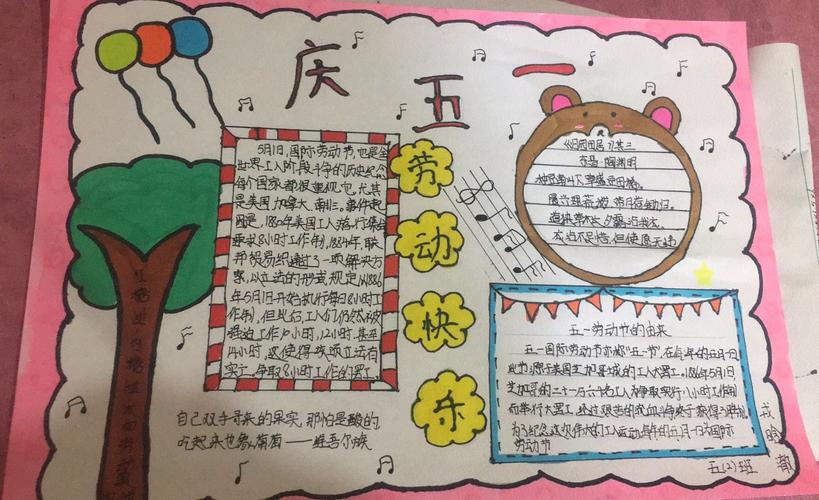 庆五一
5月1日,国际劳动节,也是全
世界工人阶段斗争的历史纪念
每个国家都很重视它尤其
是美国加拿大、南非。事件起
因是,1880年美国工人
要求8小时工作制,1884年,联
通过了一项解决方
案,以立法的形式规定从1886
年5月1日开始执行每日8小时工
作制,但此后,工人们仍然被
强迫工作10小时,12小时,甚至
14小时,这使得这项立法有
8小时工作的罢工。
劳动快乐
归园田居其三
陶渊明
种豆南山下,草盛豆苗稀。
晨兴理荒秽,带月荷锄归。
道狭草木长,夕露沾我衣。
衣沾不足惜,但使愿无违
五一劳动节的由来
五一国际劳动节亦称"五一节",在每年的五月一日
它源于美国芝加哥城的工人大罢工。1886年5月1日
芝加哥的二十一万六千名工人为争取实行八小时工作制
而举行大罢工,经过艰苦的流血斗争终于获得了胜利
为了纪念这次伟大的工人运动每年的五月一日为国际
劳动节
自己双手寻来的果实,那怕是酸的,
吃起来也象葡萄——维吾尔族
五(2)班